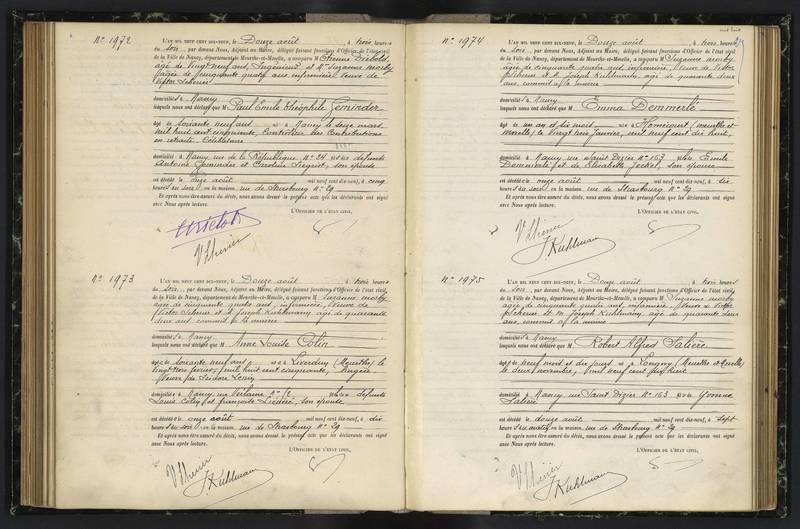 N° 1972
L'AN MIL NEUF CENT DIX-NEUF, le Douze août, à trois heures
du soir, par devant Nous, Adjoint au Maire, délégué faisant fonctions d'Officier de l'état civil
de la Ville de Nancy, département de Meurthe-et-Moselle, a comparu M Etienne
âgé de vingt neuf ans, Ingénieur et Me Suzanne
âgée de cinquante quatre ans infirmière, Veuve de
Victor Scherier
domiciliés à Nancy
lesquels nous ont déclaré que M Paul Emile Théophile Geminder
âgé de soixante neuf ans né à Nancy le seize mars
mil huit cent cinquante, Contrôleur des Contributions
en retraite, Célibataire
domicilié à Nancy rue de la République N° 24 fils de défunts
Antoine Geminder et Caroline, son épouse
est décédé le onze août mil neuf cent dix-neuf, à cinq
heures du soir, en la maison, rue de Strasbourg N° 29
Et après nous être assuré du décès, nous avons dressé le présent acte que les déclarants ont signé
avec Nous après lecture.
L'OFFICIER DE L'ÉTAT CIVIL,
N° 1973
L'AN MIL NEUF CENT DIX-NEUF, le Douze août, à trois heures
du soir, par devant Nous, Adjoint au Maire, délégué faisant fonctions d'Officier de l'état civil
de la Ville de Nancy, département de Meurthe-et-Moselle, a comparu M Suzanne
âgée de cinquante quatre ans, infirmière, Veuve de
Victor Scherier et M. Joseph Kuhlmann, âgé de quarante
deux ans commis à la mairie
domiciliés à Nancy
lesquels nous ont déclaré que M Anne Louise Colin
âgée de soixante neuf ans, née à Liverdun (Meurthe) le
vingt février, mil huit cent cinquante, lingère
Veuve de Isidore
domiciliée à Nancy rue Verlaine N° 12 fille de défunts
Louis Colin et Françoise, son épouse
est décédée le onze août mil neuf cent dix-neuf, à dix
heures du soir, en la maison, rue de Strasbourg N° 29
Et après nous être assuré du décès, nous avons dressé le présent acte que les déclarants ont signé
avec Nous après lecture.
L'OFFICIER DE L'ÉTAT CIVIL,
J. Kuhlmann
N° 1974
L'AN MIL NEUF CENT DIX-NEUF, le Douze août, à trois heures
du soir, par devant Nous, Adjoint au Maire, délégué faisant fonctions d'Officier de l'état civil
de la Ville de Nancy, département de Meurthe-et-Moselle, a comparu M Suzanne
âgée de cinquante quatre ans, infirmière, Veuve de Victor
Scherier et M. Joseph Kuhlmann, âgé de quarante deux
ans, commis à la mairie
domiciliés à Nancy
lesquels nous ont déclaré que M Emma Demmerlé
âgée de un an et dix mois, née à Homécourt (Meurthe et
Moselle), le vingt trois Janvier, neuf cent dix huit,
domiciliée à Nancy rue Saint Dizier N° 153 fille de Emile
Demmerlé et de Elisabeth Jeckel, son épouse
est décédée le onze août mil neuf cent dix-neuf, à six
heures du soir, en la maison, rue de Strasbourg N° 29
Et après nous être assuré du décès, nous avons dressé le présent acte que les déclarants ont signé
avec Nous après lecture.
L'OFFICIER DE L'ÉTAT CIVIL,
J. Kuhlmann
N° 1975
L'AN MIL NEUF CENT DIX-NEUF, le Douze août, à trois heures
du soir, par devant Nous, Adjoint au Maire, délégué faisant fonctions d'Officier de l'état civil
de la Ville de Nancy, département de Meurthe-et-Moselle, a comparu M Suzanne
âgée de cinquante quatre ans, infirmière, Veuve de Victor
Scherier et M. Joseph Kuhlmann, âgé de quarante deux
ans, commis à la mairie
domiciliés à Nancy
lesquels nous ont déclaré que M Robert Alfred Salière
âgé de neuf mois et dix jours né à Longwy (Meurthe et Moselle)
le deux novembre, neuf cent dix huit
domicilié à Nancy rue Saint Dizier N° 153 fils de Yvonne
Salière
est décédé le douze août mil neuf cent dix-neuf, à sept
heures du matin, en la maison, rue de Strasbourg N° 29
Et après nous être assuré du décès, nous avons dressé le présent acte que les déclarants ont signé
avec Nous après lecture.
L'OFFICIER DE L'ÉTAT CIVIL,
J. Kuhlmann